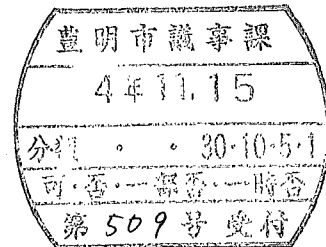 豊明市議事課
4年11.15
分類 ・ ・ 30・10・5・1
可・否・一部否・一時否
第509号受付